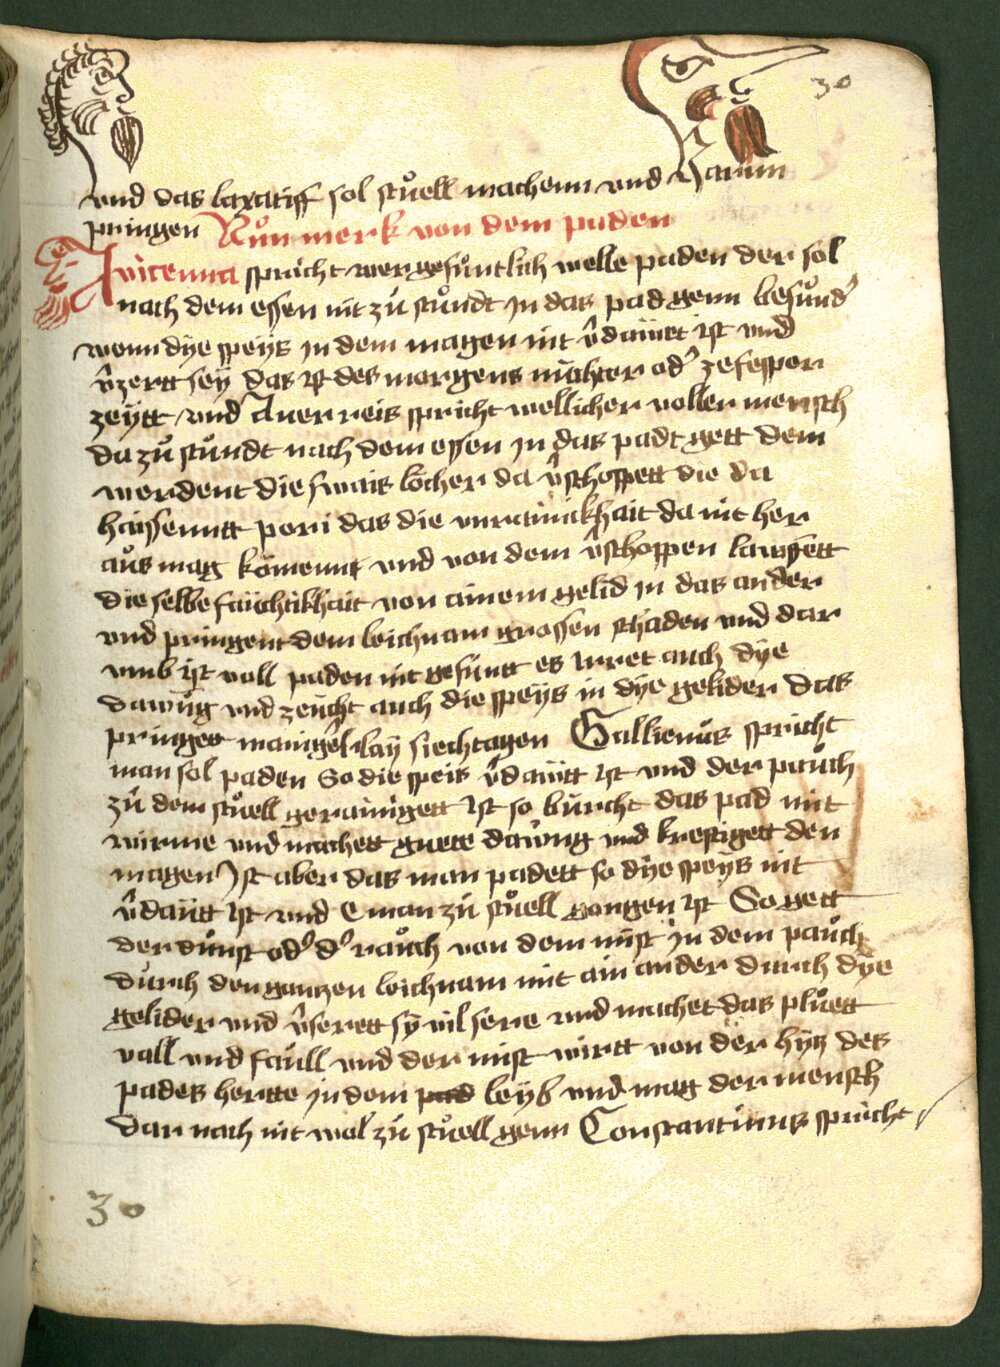 30
vnd das laxatiff sol stůell machenn vnd Harnn
pringen Nůn merk von dem paden
Avicenna spricht wer gesůntlich welle paden der sol
nach dem essen nit zů stůndt in das pad genn besůnd'
wenn dÿe speÿs in dem magen nit v̄daüet ist vnd
v̄zertt seÿ das ist des morgens nüchter od' ze fesper
zeÿtt vnd Auerreis spricht wellicher voller mensch
da zů stůndt nach dem essen in das padt gett dem
werdent die swais löcher da v̄schoppett die da
haissenntt pori das die vnrainikhait da nit her
aůs mag kömennt vnd von dem v̄schoppen lawffett
die selbe faüchtikhait von ainem gelid in das ander
vnd pringent dem leichnam grossen schaden vnd dar
vmb ist voll paden nit gesüntt es irret auch dÿe
dawůg vnd zeücht auch die speÿs in dÿe gelider das
pringet maniger laÿ siechtagen Gallienůs spricht
man sol paden So die speis v̄daütt ist vnd der paůch
zů dem stůell gerainigett ist so bürcht das pad mit
wirme vnd machett guete dawng vnd kreftigett den
magen Ist aber das man padett so dÿe speÿs nit
v̄daütt ist vnd E man zů stůell gangen ist So gett
der důnst od' d' raůch von dem mist in dem paůch
dürch den gantzen leichnam mit ain ander dürch dÿe
gelider vnd v̄serett sÿ vil sere vnd machet das plůett
vall vnd faüll vnd der mist wirtt von der hÿtz des
pades hertte in dem pad leÿb vnd mag der mensch
dar nach nit wol zů stůell genn Constantinus spricht
30